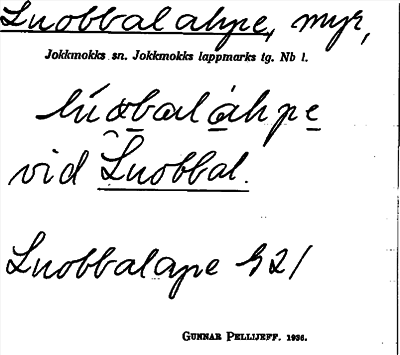 Luobbalahpe, myr,
Jokkmokks sn. Jokkmokks lappmarks tg. Nb l.
lúobbaláhpe
vid Luobbal.
Luobbalape G21
GUNNAR PELLIJEFF. 1936.